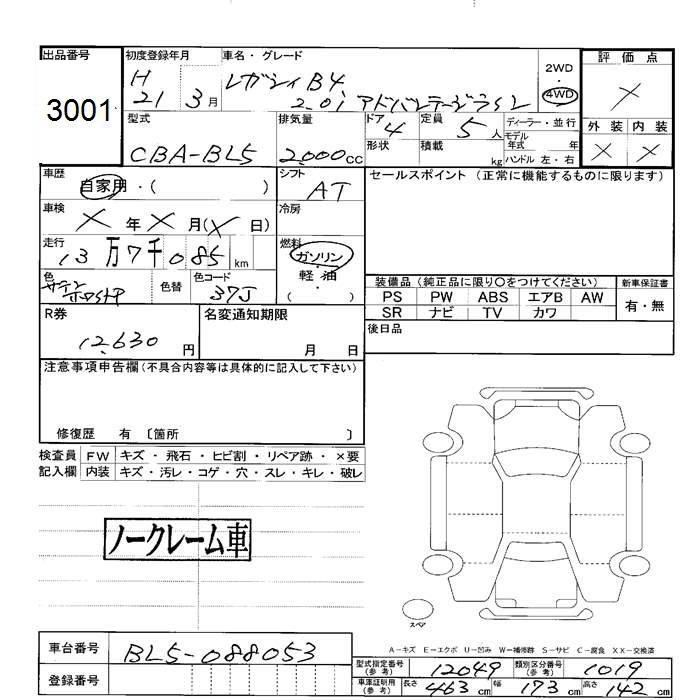 出品番号 初度登録年月 車名・グレード 評価点
3001 H 21 3月 レガシィB4 2WD
2.0i アドバンテージライン 4WD ×
型式 排気量 ドア 4 定員 5人 ディーラー・並行 外装 内装
CBA-BL5 2,000cc 形状 積載 kg モデル年式 年 × ×
ハンドル 左・右
車歴 自家用・( ) シフト AT セールスポイント (正常に機能するものに限ります)
車検 × 年 × 月(×日) 冷房
走行 13万7千085km 燃料 ガソリン・軽油
( )
色 サテンホワイトP 色替 色コード 37J
装備品 (純正品に限り〇をつけてください) 新車保証書
PS PW ABS エアB AW 有・無
SR ナビ TV カワ
R券 12,630円 名変通知期限 月 日 後日品
注意事項申告欄(不具合内容等は具体的に記入して下さい)
修復歴 有 〔箇所 〕
検査員 FW キズ・飛石・ヒビ割・リペア跡・×要
記入欄 内装 キズ・汚レ・コゲ・穴・スレ・キレ・破レ
ノークレーム車
スペア
A-キズ E-エクボ U-凹み W-補修跡 S-サビ C-腐食 XX-交換済
車台番号 BL5-088053
登録番号
型式指定番号(参考) 12049 類別区分番号(参考) 1019
車庫証明用(参考) 長さ 463cm 幅 173cm 高さ 142cm